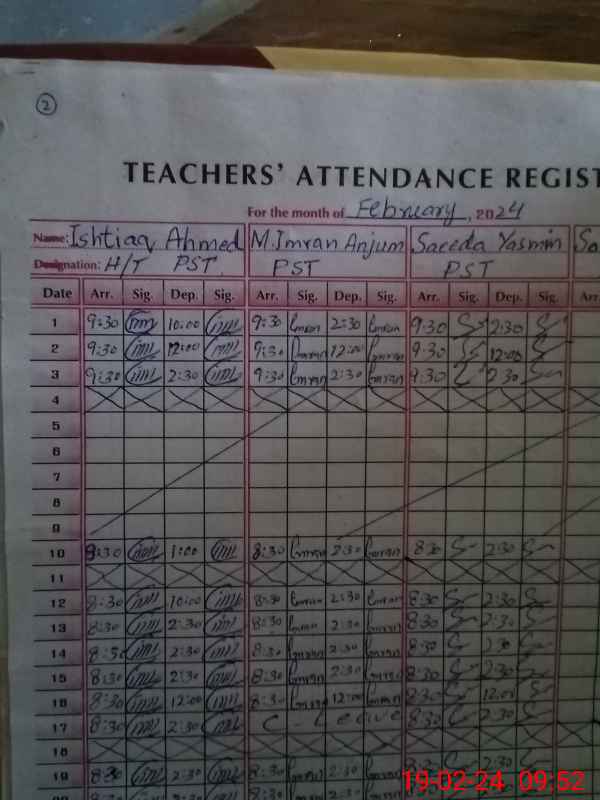 2
TEACHERS' ATTENDANCE REGIST
For the month of February, 2024
Name: Ishtiaq Ahmed M. Imran Anjum Saeeda Yasmin
Designation: H/T PST PST PST
Date Arr. Sig. Dep. Sig. Arr. Sig. Dep. Sig. Arr. Sig. Dep. Sig. Arr.
1 9:30 10:00 9:30 Imran 2:30 Imran 9:30 2:30
2 9:30 12:00 9:30 Imran 12:00 Imran 9:30 12:00
3 9:30 2:30 9:30 Imran 2:30 Imran 9:30 2:30
4
5
6
7
8
9
10 8:30 1:00 8:30 Imran 2:30 Imran 8:30 2:30
11
12 8:30 10:00 8:30 Imran 2:30 Imran 8:30 2:30
13 8:30 2:30 8:30 Imran 2:30 Imran 8:30 2:30
14 8:30 2:30 8:30 Imran 2:30 Imran 8:30 2:30
15 8:30 2:30 8:30 Imran 2:30 Imran 8:30 2:30
16 8:30 12:00 8:30 Imran 12:00 Imran 8:30 12:00
17 8:30 2:30 C - Leave 8:30 2:30
18
19 8:30 2:30 8:30 Imran 2:30 Imran 8:30
19-02-24 09:52